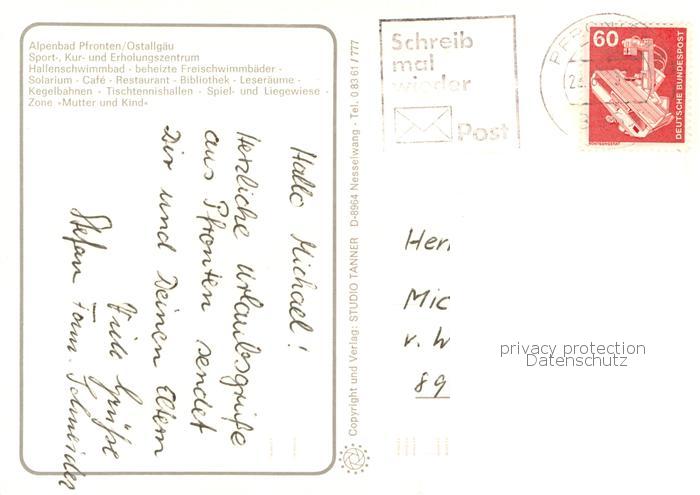 Alpenbad Pfronten/Ostallgäu
Sport-, Kur- und Erholungszentrum
Hallenschwimmbad · beheizte Freischwimmbäder ·
Solarium · Café · Restaurant · Bibliothek · Leseräume ·
Kegelbahnen · Tischtennishallen · Spiel- und Liegewiese ·
Zone »Mutter und Kind«
Hallo Michael!
Herzliche Urlaubsgrüße
aus Pfronten sendet
Dir und Deinen Eltern
Viele Grüße
Stefan Fam. Schneider
Copyright und Verlag: STUDIO TANNER D-8964 Nesselwang · Tel. 0 83 61 / 777
Schreib
mal
wieder
Post
PFRON
60
DEUTSCHE BUNDESPOST
RÖNTGENGERÄT
Herr
Mic
v. W
89
privacy protection
Datenschutz